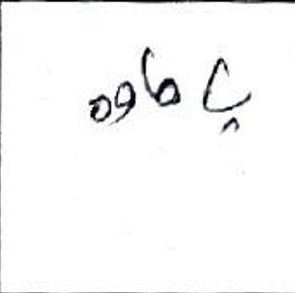 پاماوه